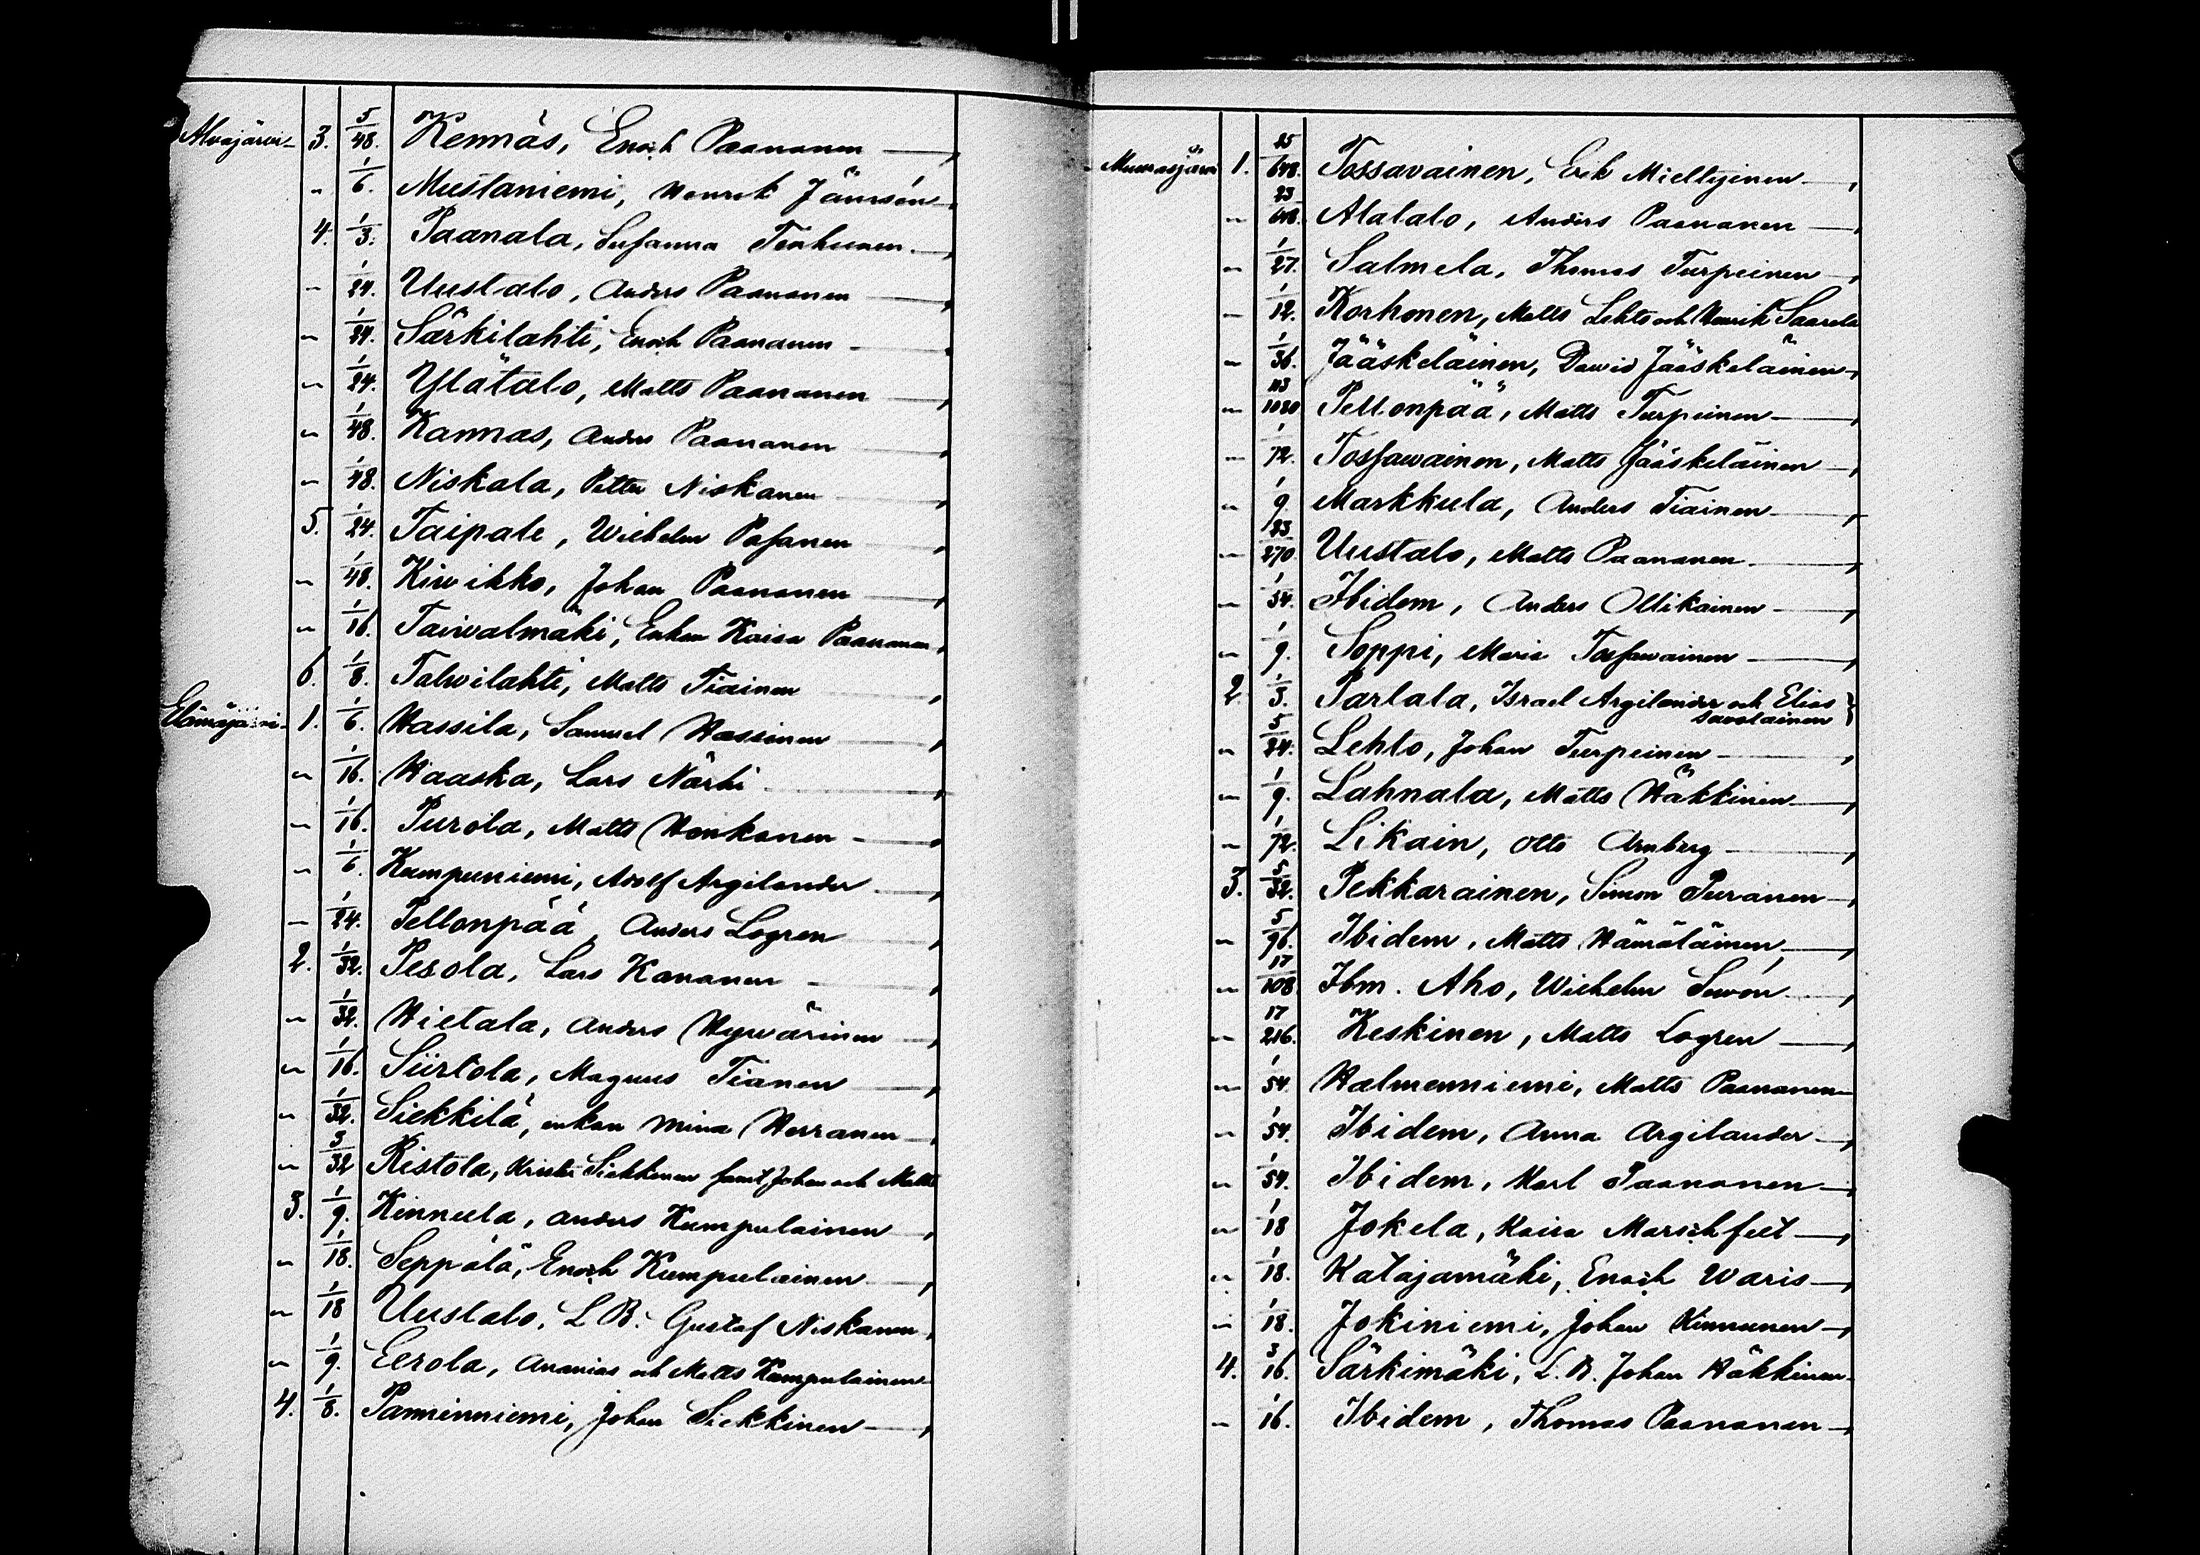 Alvajärvi 3. 5/48. Kennäs, Enoch Paananen
" 1/6. Mustaniemi, Henrik Jämsén
4. 1/3. Paanala, Susanna Tenhunen
" 1/24. Uustalo, Anders Paananen
" 1/24. Särkilahti, Enoch Paananen
" 1/24. Ylätalo, Matts Paananen
" 1/48. Kannas, Anders Paananen
" 1/48. Niskala, Petter Niskanen
5. 1/24. Taipale, Wilhelm Pasanen
" 1/48. Kiwikko, Johan Paananen
" 1/16. Taiwalmäki, Enkan Kaisa Paananen
6. 1/8. Talwilahti, Matts Tiainen
Elämäjärvi 1. 1/6. Hassila, Samuel Hassinen
" 1/16. Haaska, Lars Närhi
" 1/16. Purola, Matts Honkonen
" 1/6. Kumpuniemi, Adolf Argilander
" 1/24. Pellonpää, Anders Logren
2. 1/32. Pesola, Lars Kananen
" 1/32. Hietala, Anders Hywärinen
" 1/16. Siirtola, Magnus Tianen
" 1/32. Siekkilä, enkan Mina Herranen
" 3/32 Ristola, Krister Siekkinen samt Johan och Matts
3. 1/9. Kinnula, Anders Kumpulainen
" 1/18. Seppälä, Enoch Kumpulainen
" 1/18 Uustalo, L.B. Gustaf Niskanen
" 1/9. Eerola, Ananias och Matts Kumpulainen
4. 1/8. Paminniemi, Johan Siekkinen
Muurasjärvi 1. 25/648. Tossavainen, Erik Mieltyinen
" 23/648. Alatalo, Anders Paananen
" 1/27. Salmela, Thomas Turpeinen
" 1/12. Korhonen, Matts Lehto och Henrik Saarela
" 1/36. Jääskeläinen, David Jääskeläinen
" 113/1080 Pellonpää, Matts Turpeinen
" 1/72. Tossawainen, Matts Jääskeläinen
" 1/9. Markkula, Anders Tiainen
" 23/270 Uustalo, Matts Paananen
" 1/54. Ibidem, Anders Ollikainen
" 1/9. Soppi, Maria Tossawainen
2 1/3. Parlala, Israel Argilander och Elias
Savolainen
" 5/24. Lehto, Johan Turpeinen
" 1/9. Lahnala, Matts Häkkinen
" 1/72. Likain, Otto Arnberg
3. 5/32. Pekkarainen, Simon Puranen
" 5/96. Ibidem, Matts Hämäläinen
" 17/108. Ibm. Aho, Wilhelm Sawon
" 17/216. Keskinen, Matts Logren
" 1/54. Halmenniemi, Matts Paananen
" 1/54. Ibidem, Anna Argilander
" 1/54. Ibidem, Karl Paananen
" 1/18 Jokela, Kaisa Marschfelt
" 1/18. Katajamäki, Enoch Waris
" 1/18. Jokiniemi, Johan Kinnunen
4. 3/16. Särkimäki, L.B. Johan Häkkinen
" 1/16. Ibidem, Thomas Paananen